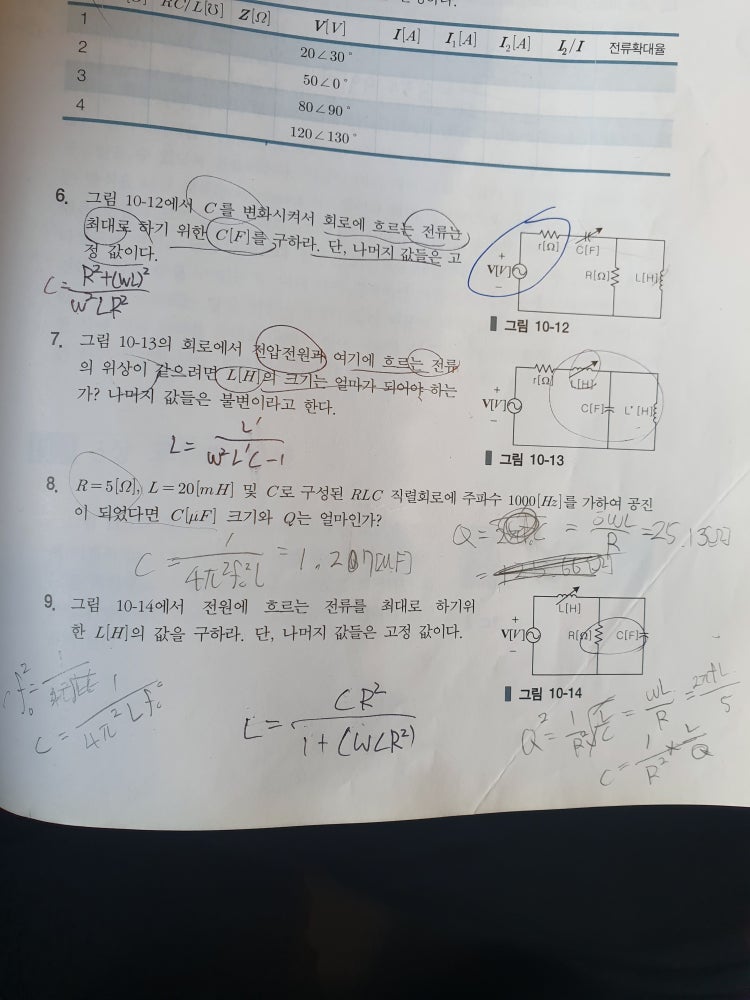 RC/L[℧] Z[Ω] V[V] I[A] I₁[A] I₂[A] I₂/I 전류확대율
1 20∠30°
2 50∠0°
3 80∠90°
4 120∠130°
6. 그림 10-12에서 C를 변화시켜서 회로에 흐르는 전류는
최대로 하기 위한 C[F]를 구하라. 단, 나머지 값들은 고
정 값이다.
C = R²+(WL)² / W²LR²
V[V] + - r[Ω] C[F] R[Ω] L[H]
그림 10-12
7. 그림 10-13의 회로에서 전압전원과 여기에 흐르는 전류
의 위상이 같으려면 L[H]의 크기는 얼마가 되어야 하는
가? 나머지 값들은 불변이라고 한다.
L = L' / W²L'C-1
V[V] r[Ω] L[H] C[F] L'[H]
그림 10-13
8. R=5[Ω], L=20[mH] 및 C로 구성된 RLC 직렬회로에 주파수 1000[Hz]를 가하여 공진
이 되었다면 C[μF] 크기와 Q는 얼마인가?
C = 1 / 4π²f₀²L = 1.207[μF]
Q = = WL / R = 25.13[Ω]
9. 그림 10-14에서 전원에 흐르는 전류를 최대로 하기위
한 L[H]의 값을 구하라. 단, 나머지 값들은 고정 값이다.
V[V] + - L[H] R[Ω] C[F]
그림 10-14
C = 1 / 4π²Lf₀²
L = CR² / 1+(WCR²)
Q² = 1/R² L/C = WL/R = 2πfL/5
C = 1/R² × L/Q